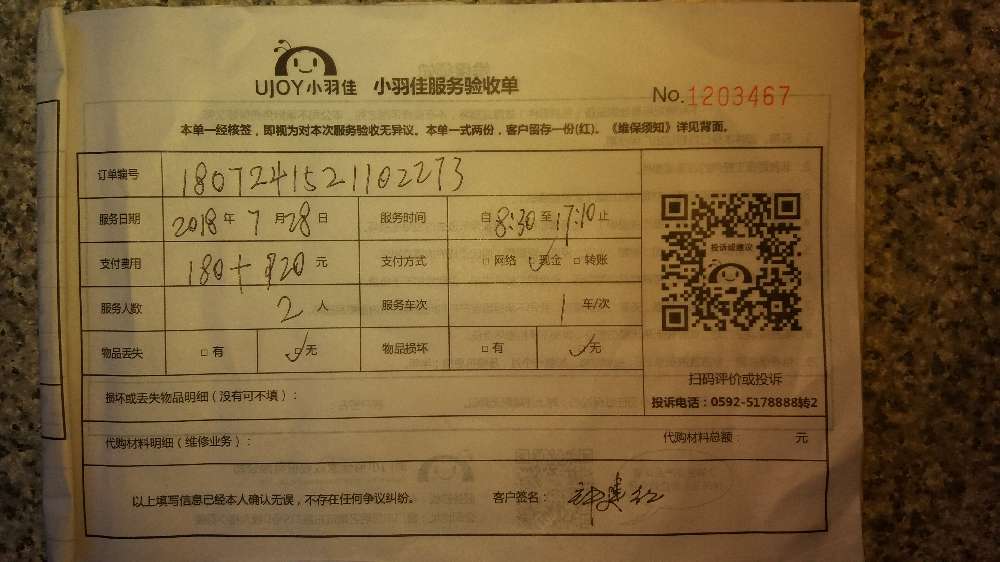 UJOY小羽佳 小羽佳服务验收单
No.1203467
本单一经核签，即视为对本次服务验收无异议。本单一式两份，客户留存一份(红)。《维保须知》详见背面。
订单编号 1807241521102273
服务日期 2018年7月28日 服务时间 自8:30至17:10止
支付费用 180+120元 支付方式 □网络 ✓现金 □转账
服务人数 2人 服务车次 1车/次
物品丢失 □有 ✓无 物品损坏 □有 ✓无
投诉或建议
扫码评价或投诉
投诉电话：0592-5178888转2
损坏或丢失物品明细（没有可不填）：
代购材料明细（维修业务）： 代购材料总额： 元
以上填写信息已经本人确认无误，不存在任何争议纠纷。 客户签名：